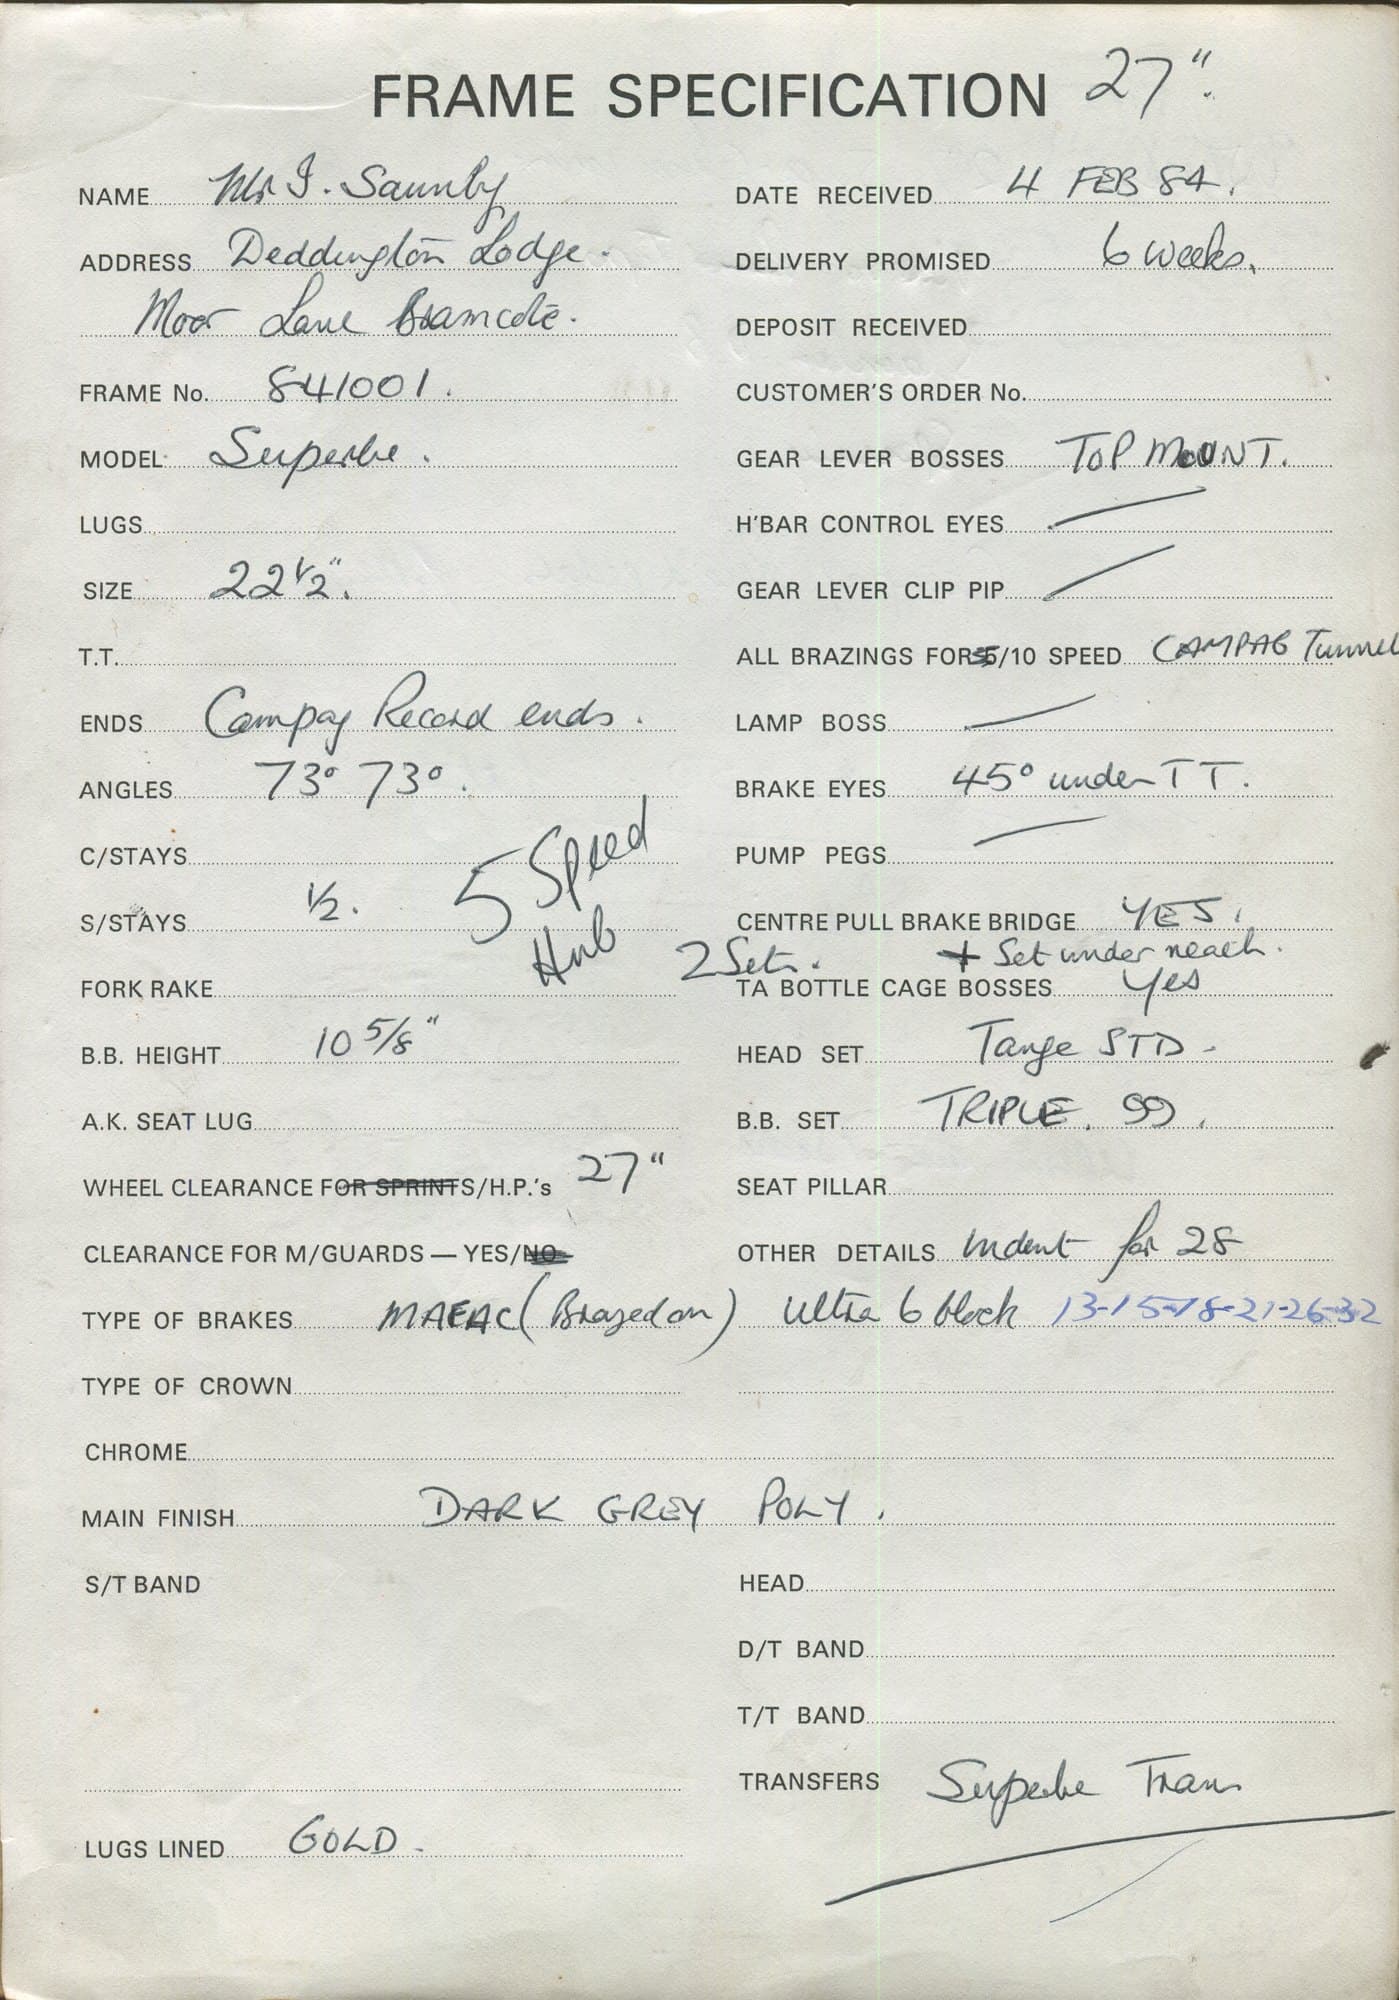 FRAME SPECIFICATION 27"
NAME Mr I. Saunby
ADDRESS Deddington Lodge.
Moor Lane Bramcote.
FRAME No. 841001.
MODEL Superbe.
LUGS
SIZE 22 1/2".
T.T.
ENDS Campag Record ends.
ANGLES 73° 73°.
C/STAYS
S/STAYS 1/2.
5 Speed
Hub
FORK RAKE
B.B. HEIGHT 10 5/8"
A.K. SEAT LUG
WHEEL CLEARANCE FOR SPRINTS/H.P.'s 27"
CLEARANCE FOR M/GUARDS — YES/NO
TYPE OF BRAKES MAFAC (Brazed on)
TYPE OF CROWN
CHROME
MAIN FINISH DARK GREY POLY.
S/T BAND
LUGS LINED GOLD.
DATE RECEIVED 4 FEB 84.
DELIVERY PROMISED 6 weeks.
DEPOSIT RECEIVED
CUSTOMER'S ORDER No.
GEAR LEVER BOSSES TOP MOUNT.
H'BAR CONTROL EYES
GEAR LEVER CLIP PIP
ALL BRAZINGS FOR 5/10 SPEED CAMPAG Tunnel
LAMP BOSS
BRAKE EYES 45° under TT.
PUMP PEGS
CENTRE PULL BRAKE BRIDGE YES.
2 Sets. + Set under neath.
TA BOTTLE CAGE BOSSES Yes
HEAD SET Tange STD.
B.B. SET TRIPLE. 99.
SEAT PILLAR
OTHER DETAILS indent for 28
Ultra 6 block 13-15-18-21-26-32
HEAD
D/T BAND
T/T BAND
TRANSFERS Superbe Trans